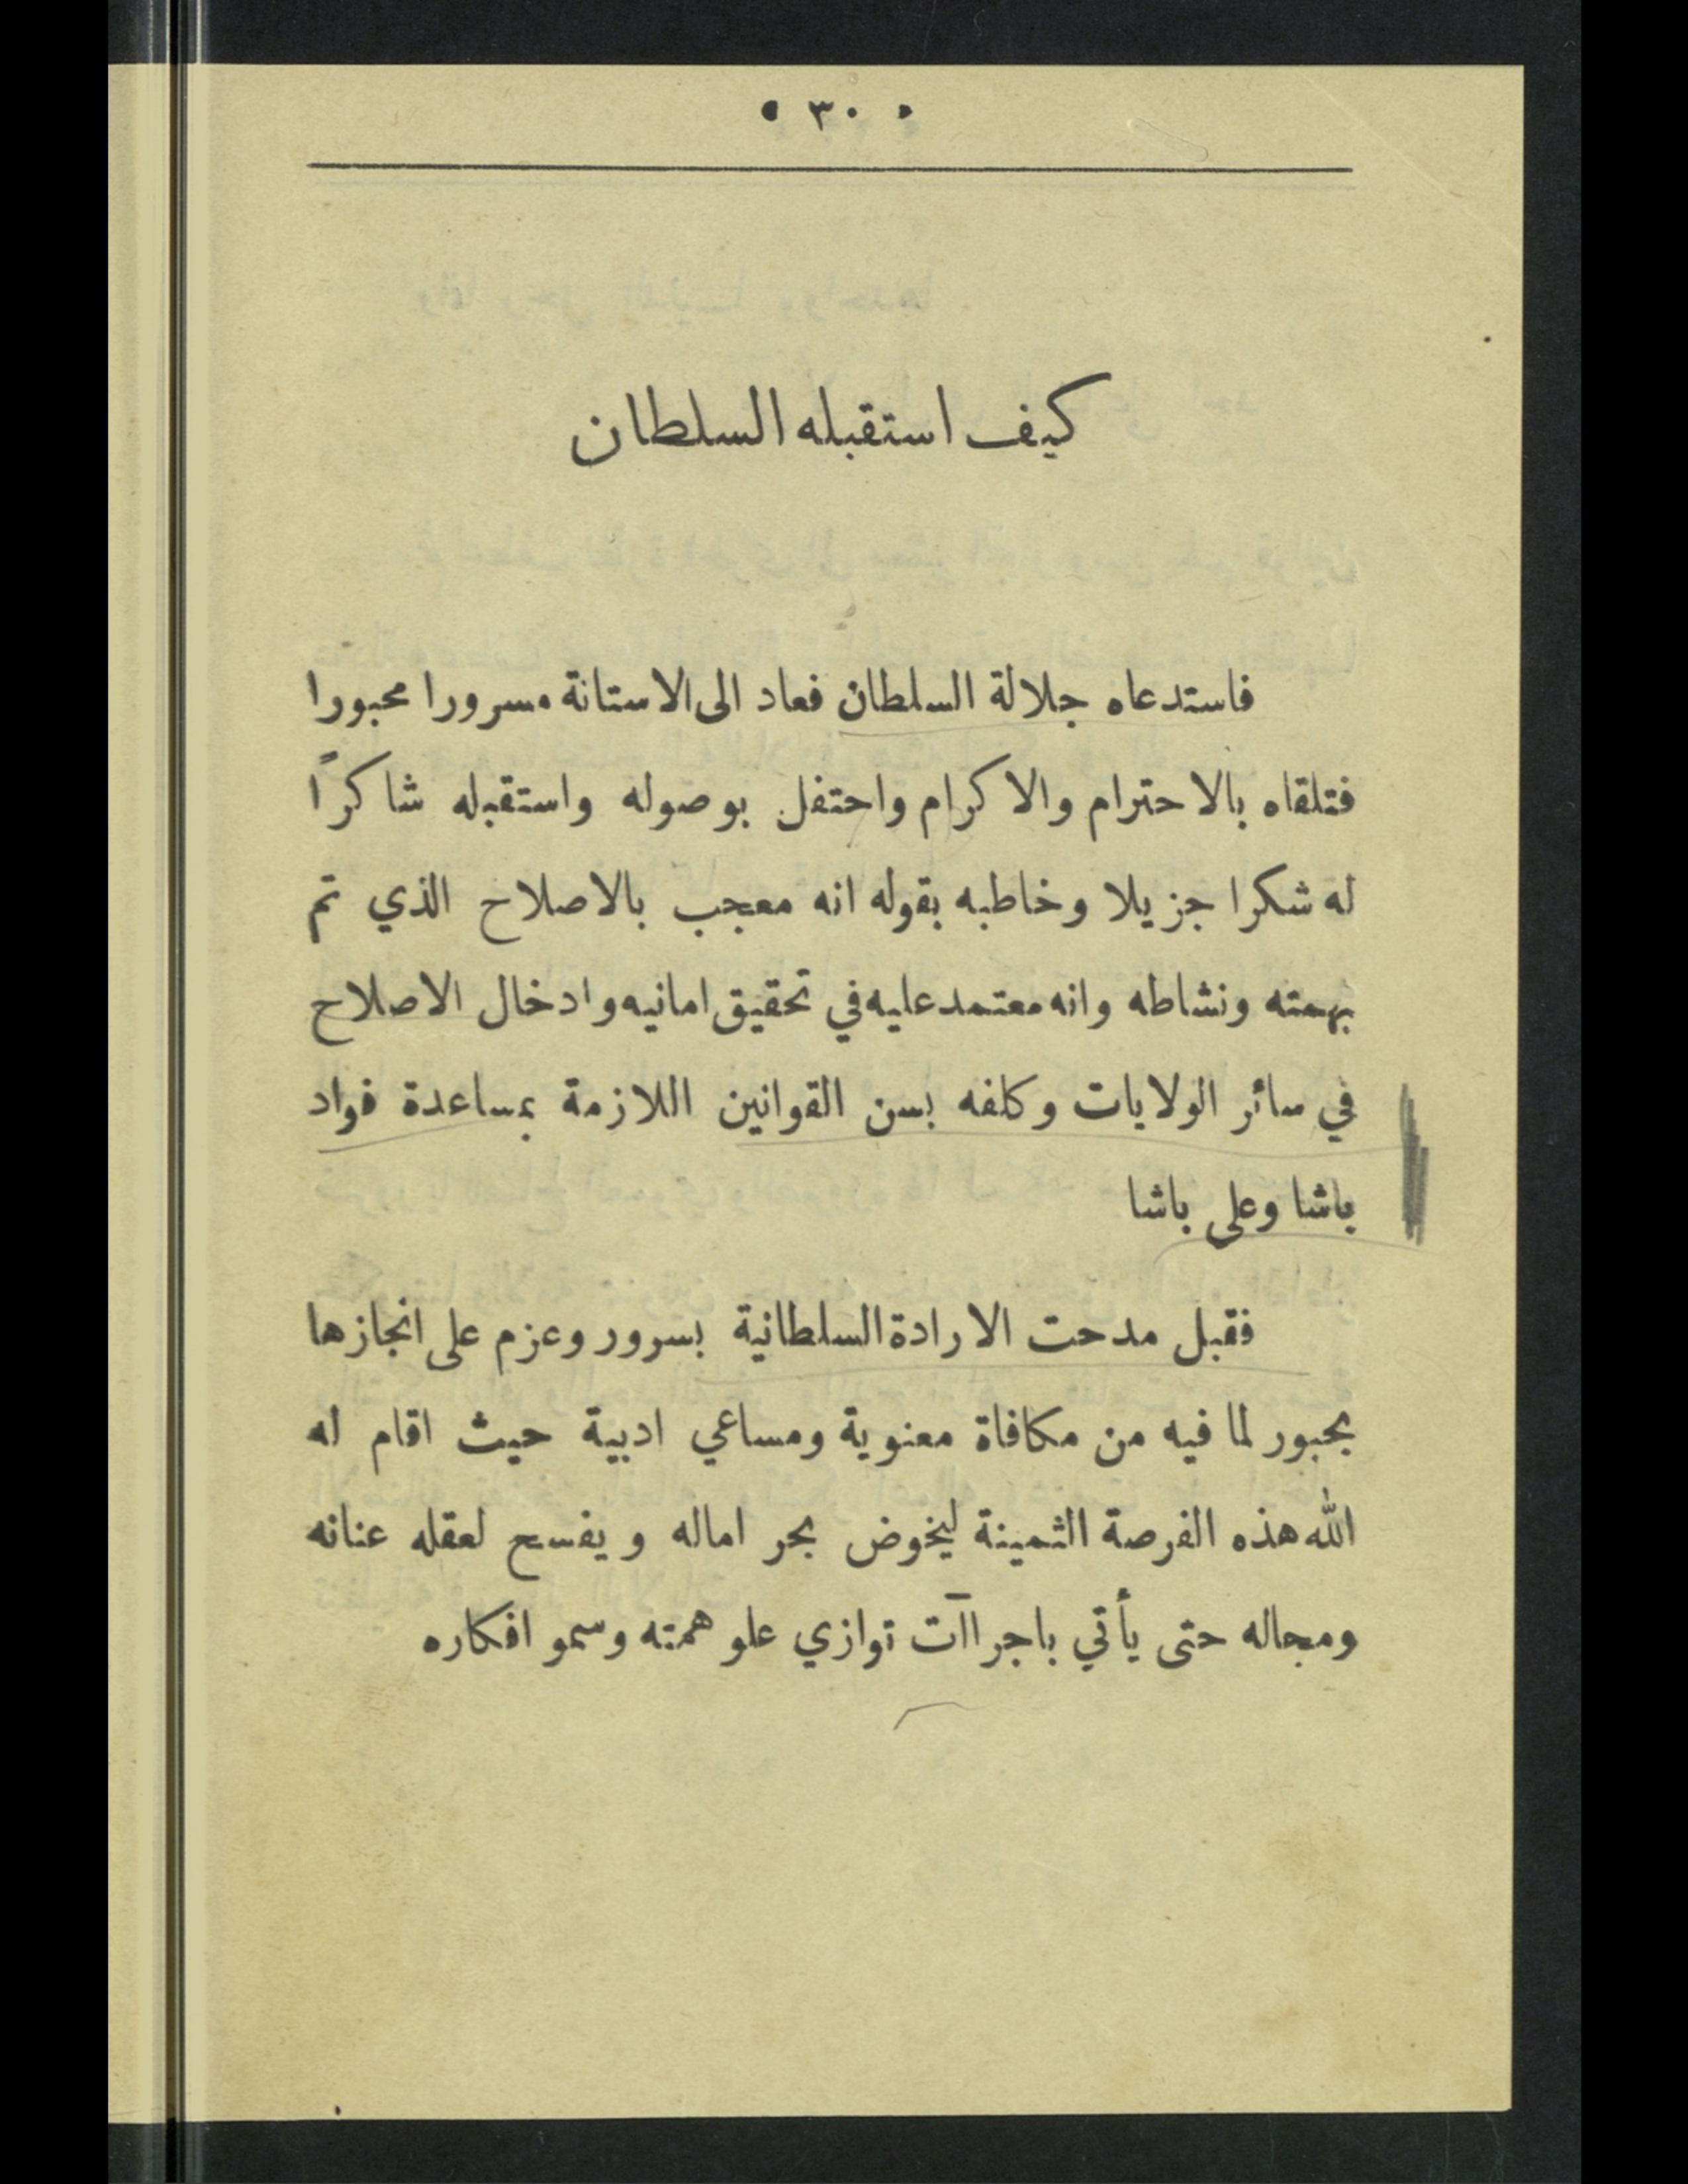 • ٣٠ •
كيف استقبله السلطان
فاستدعاه جلالة السلطان فعاد الى الاستانة مسرورا محبورا
فتلقاه بالاحترام والاكرام واحتفل بوصوله واستقبله شاكراً
له شكرا جزيلا وخاطبه بقوله انه معجب بالاصلاح الذي تم
بهمته ونشاطه وانه معتمد عليه في تحقيق امانيه وادخال الاصلاح
في سائر الولايات وكلفه بسن القوانين اللازمة بمساعدة فواد
باشا وعلى باشا
فقبل مدحت الارادة السلطانية بسرور وعزم على انجازها
بحبور لما فيه من مكافاة معنوية ومساعي ادبية حيث اقام له
الله هذه الفرصة الثمينة ليخوض بحر اماله ويفسح لعقله عنانه
ومجاله حتى يأتي باجراآت توازي علو همته وسمو افكاره